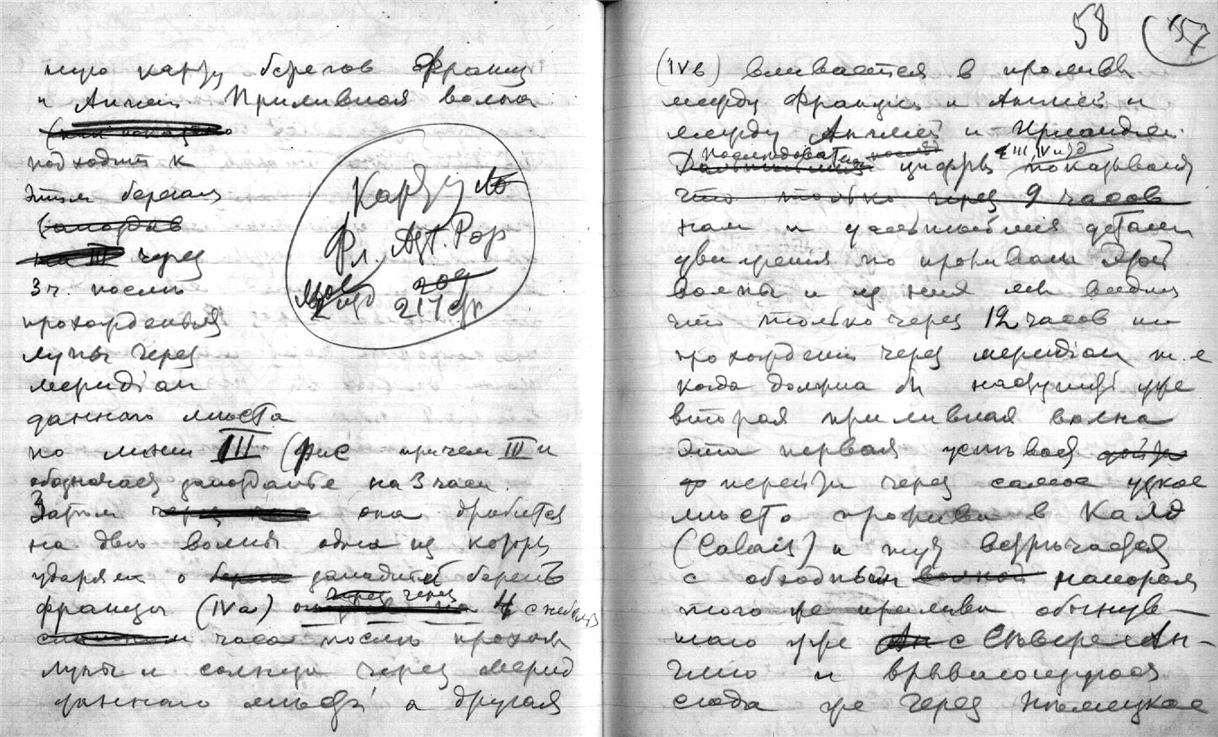 ную карту берегов Франц
и Англіи. Приливная волна
подходит к
этим берегам
через
3 ч. послѣ
прохожденья
луны через
меридіан
данного мѣста
по линіи III (рис причем III и
обозначает запозданье на 3 часа.
Затѣм она дробится
на двѣ волны одна из котор
ударяет о западный берегъ
Франціи (IVa) через 4 с небол
часа послѣ прохож
луны и солнца через мерид
данного мѣста а другая
Карту
Фл. Аст. Pop
217 стр
58 (57)
(IVв) вливается в проливъ
между Франціей и Англіей и
между Англіей и Ирландіей.
послѣдоват цифры III, IV и д показывая
что только через 9 часов
нам и дальнѣйшія детали
движения по проливам этой
волны и из них мы видим
что только через 12 часов по
прохожденіи через меридіан т. е
когда должна бы наступить уже
вторая приливная волна
эта первая успѣвает
перейти через самое узкое
мѣсто пролива в Калэ
(Calais) и тут встрѣчается
с обходным напором
того же прилива обогнув-
шаго уже с Сѣвера Ан-
глію и врывающагося
сюда уже через Нѣмецкое